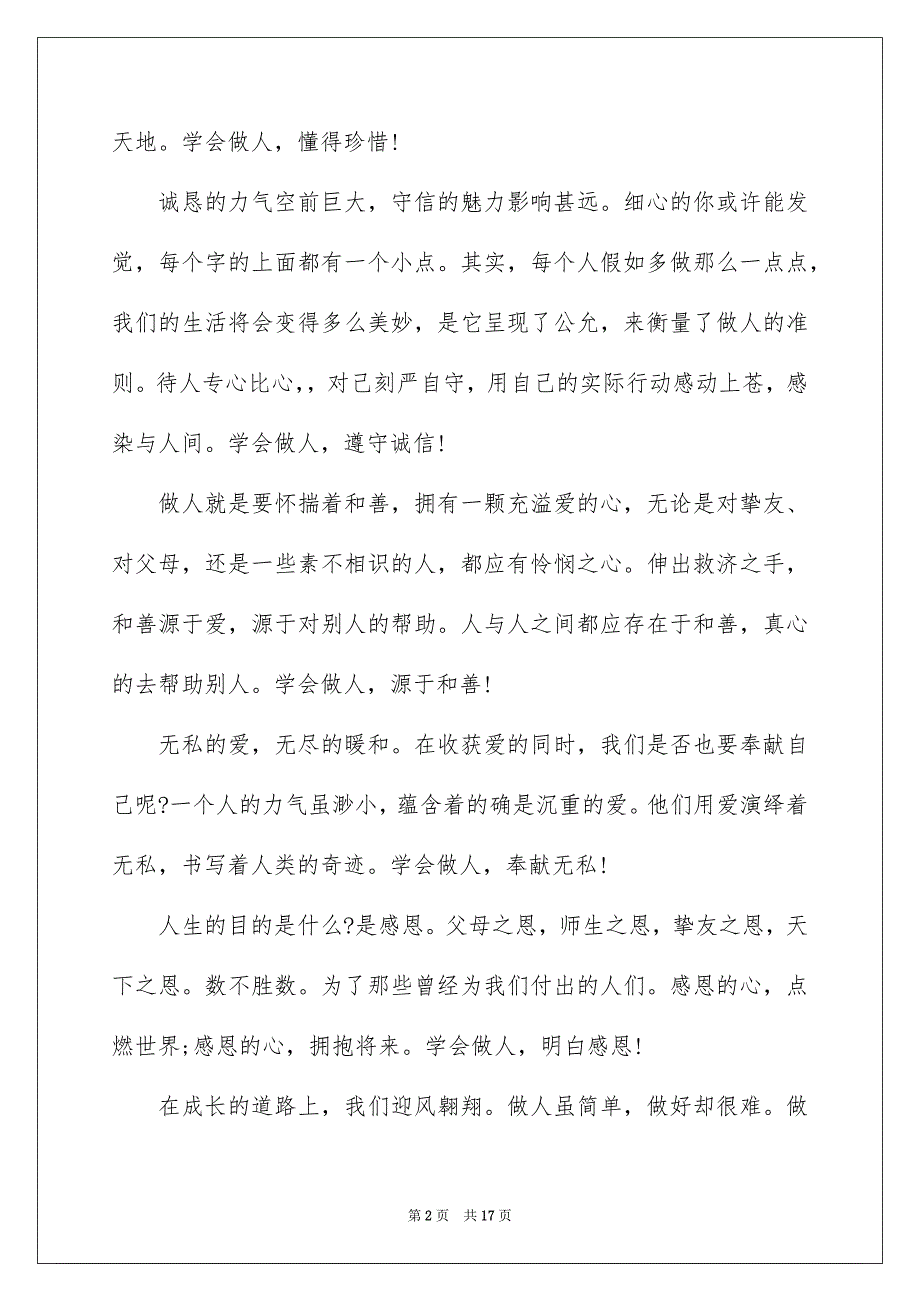 天地。学会做人，懂得珍惜!
诚恳的力气空前巨大，守信的魅力影响甚远。细心的你或许能发
觉，每个字的上面都有一个小点。其实，每个人假如多做那么一点点，
我们的生活将会变得多么美妙，是它呈现了公允，来衡量了做人的准
则。待人专心比心，，对己刻严自守，用自己的实际行动感动上苍，感
染与人间。学会做人，遵守诚信!
做人就是要怀揣着和善，拥有一颗充溢爱的心，无论是对挚友、
对父母，还是一些素不相识的人，都应有怜悯之心。伸出救济之手，
和善源于爱，源于对别人的帮助。人与人之间都应存在于和善，真心
的去帮助别人。学会做人，源于和善!
无私的爱，无尽的暖和。在收获爱的同时，我们是否也要奉献自
己呢?一个人的力气虽渺小，蕴含着的确是沉重的爱。他们用爱演绎着
无私，书写着人类的奇迹。学会做人，奉献无私!
人生的目的是什么?是感恩。父母之恩，师生之恩，挚友之恩，天
下之恩。数不胜数。为了那些曾经为我们付出的人们。感恩的心，点
燃世界;感恩的心，拥抱将来。学会做人，明白感恩!
在成长的道路上，我们迎风翱翔。做人虽简单，做好却很难。做
第 2 页 共 17 页